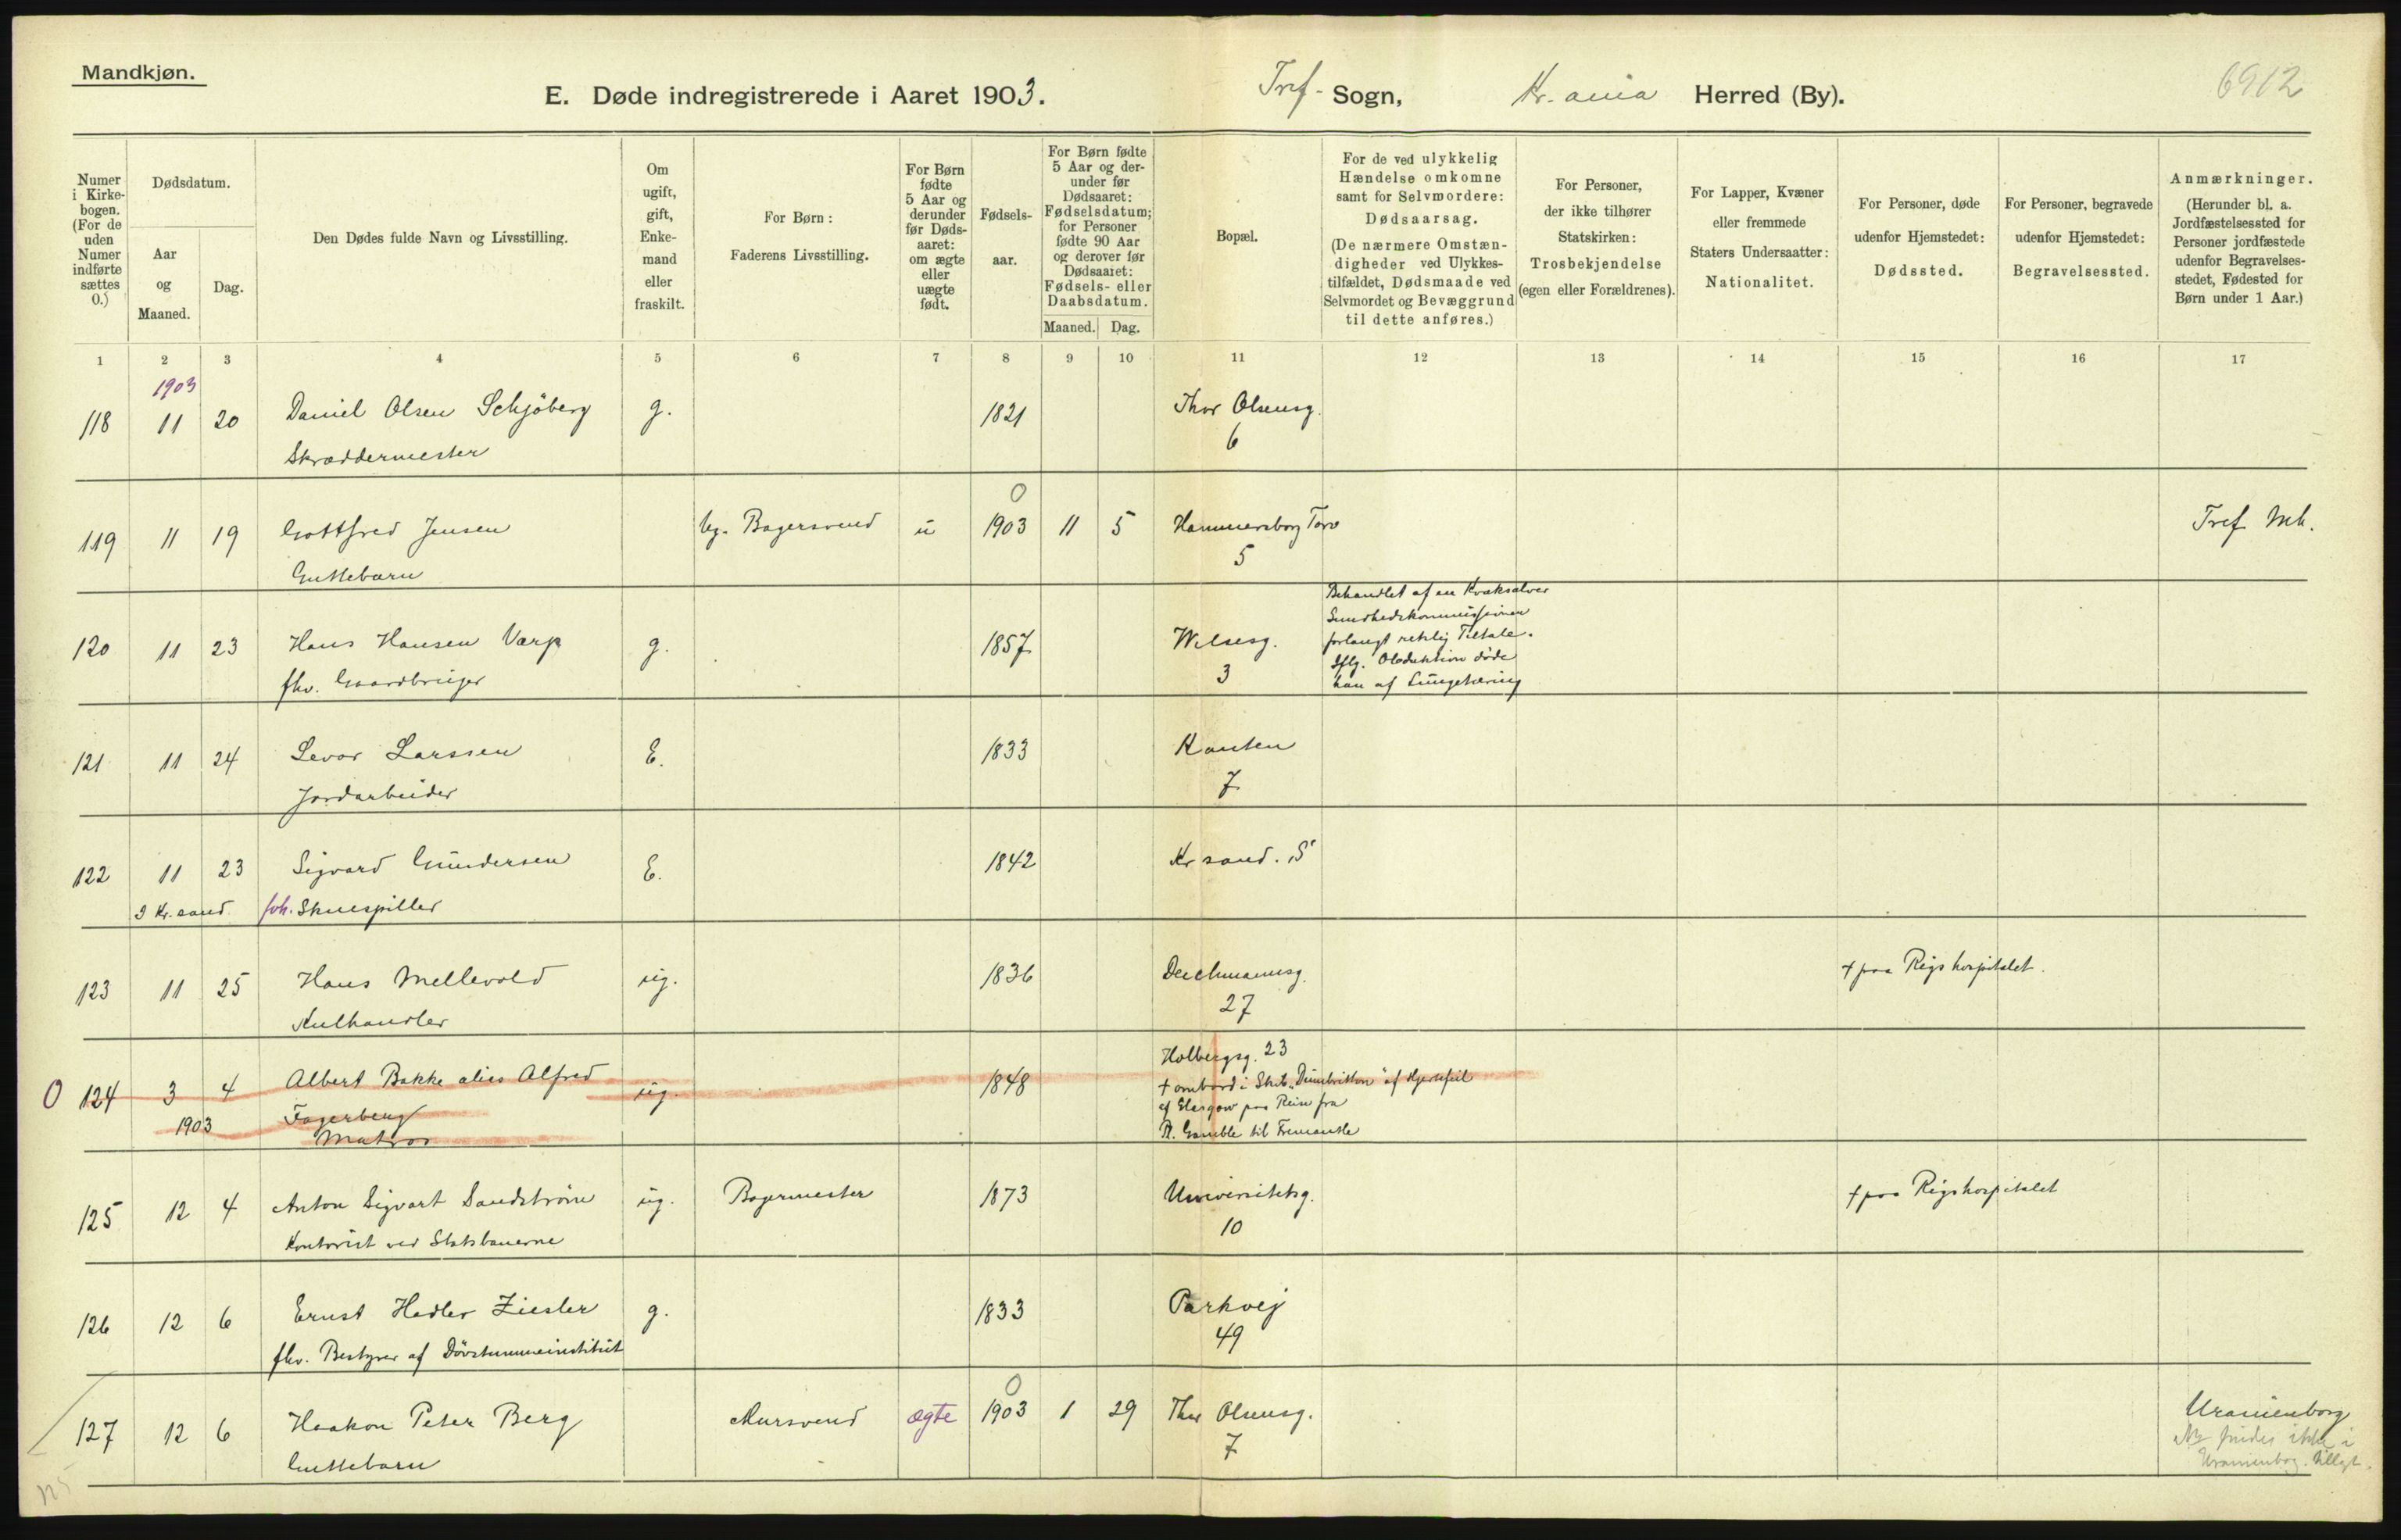 Mandkjøn.
E. Døde indregistrerede i Aaret 1903.
Tref. Sogn, Kr.ania Herred (By).
6912
Numer i Kirke-bogen. (For de uden Numer indførte sættes 0.)
Dødsdatum.
Aar og Maaned.
Dag.
Den Dødes fulde Navn og Livsstilling.
Om ugift, gift, Enke-mand eller fraskilt.
For Børn: Faderens Livsstilling.
For Børn fødte 5 Aar og derunder før Døds-aaret: om ægte eller uægte født.
Fødsels-aar.
For Børn fødte 5 Aar og der-under før Dødsaaret: Fødselsdatum; for Personer fødte 90 Aar og derover før Dødsaaret: Fødsels- eller Daabsdatum.
Maaned. Dag.
Bopæl.
For de ved ulykkelig Hændelse omkomne samt for Selvmordere: Dødsaarsag. (De nærmere Omstæn-digheder ved Ulykkes-tilfældet, Dødsmaade ved Selvmordet og Bevæggrund til dette anføres.)
For Personer, der ikke tilhører Statskirken: Trosbekjendelse (egen eller Forældrenes).
For Lapper, Kvæner eller fremmede Staters Undersaatter: Nationalitet.
For Personer, døde udenfor Hjemstedet: Dødssted.
For Personer, begravede udenfor Hjemstedet: Begravelsessted.
Anmærkninger. (Herunder bl. a. Jordfæstelsessted for Personer jordfæstede udenfor Begravelses-stedet, Fødested for Børn under 1 Aar.)
1 2 3 4 5 6 7 8 9 10 11 12 13 14 15 16 17
1903
118 11 20 Daniel Olsen Schjöberg g. 1821 Thor Olsensg.
Skræddermester 6
0
119 11 19 Gottfred Jensen Ug. Bagersvend u 1903 11 5 Hammersborg Torv Tref Mh.
Guttebarn 5
120 11 23 Hans Hansen Værp g. 1857 Welsesg.
fhv. Gaardbruger 3
Behandlet af en Kvaksalver
Sundhedskommissionen
forlangt retslig Tiltale.
Iflg. Obduktion döde
han af Lungetæring
121 11 24 Levor Larssen E. 1833 Kanten
Jordarbeider 7
122 11 23 Sigvard Gundersen E. 1842 Kr sand. S
I Kr.sand fvh. Skuespiller
123 11 25 Hans Mellevold ug. 1836 Deichmansg. † paa Rigshospitalet.
Kulhandler 27
0 124 3 4 Albert Bakke alias Alfred ug. 1848 Holbergsg. 23
1903 Fagerberg
Matros
† ombord i Skib "Dumbritton" af Hjertefeil
af Glasgow paa Reise fra
Pt. Gamble til Fremantle
125 12 4 Anton Sigvart Sandström ug. Bagermester 1873 Universitetsg. † paa Rigshospitalet
Kontorist ved Statsbanerne 10
126 12 6 Ernst Hedlev Ziesler g. 1833 Parkvej
fhv. Bestyrer af Dövstummeinstitut 49
0
127 12 6 Haakon Peter Berg Mursvend ægte 1903 1 29 Thor Olsensg. Uranienborg
Guttebarn 7
findes ikke i
Uranienborg. tillagt.